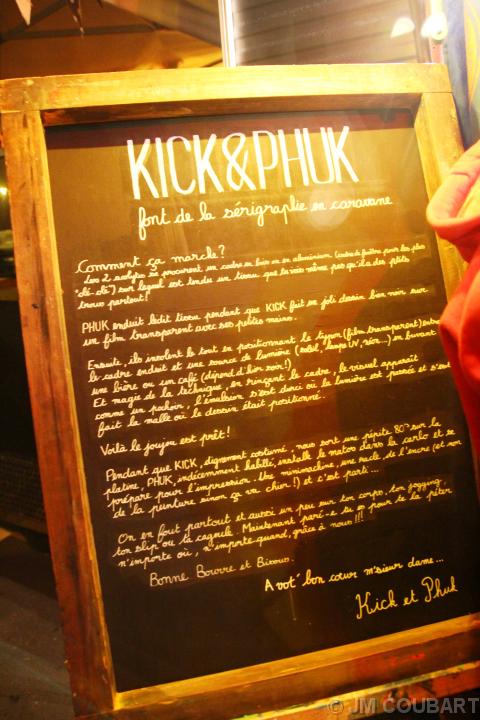 KICK&PHUK
font de la sérigraphie en caravane
Comment ça marche?
Les 2 acolytes se procurent un cadre en bois ou en aluminium (cadre de fenêtre pour les plus
"clé-clé") sur lequel est tendu un tissu que tu vois même pas qu'il a des ptits
trous partout!
PHUK enduit ledit tissu pendant que KICK fait un joli dessin bien noir sur
un film transparent avec ses petites mains.
Ensuite, ils insolent le tout en positionnant le typon (film transparent) entre
le cadre enduit et une source de lumière (soleil, lampe UV, néon...) en buvant
une bière ou un café (dépend d'l'hor soir!)
Et magie de la technique, en rinçant le cadre, le visuel apparaît
comme un pochoir, l'émulsion s'est durci où la lumière est passée et s'est
fait la malle où le dessin était positionné.
Voilà le joujou est prêt!
Pendant que KICK, dignement costumé, nous sort une pépite 80's sur la
platine, PHUK, indécemment habillé, installe le matos dans la carlo et se
prépare pour l'impression. Une minimachine, une racle de l'encre (et non
de la peinture sinon ça va chier!) et c'est parti...
On en fout partout et aussi un peu sur ton corps, ton jogging,
ton slip ou ta cagoule. Maintenant paré-e si es pour te la péter
n'importe où, n'importe quand, grâce à nous!!!
Bonne Bourre et Bisous.
A vot' bon cœur m'sieur dame...
Kick et Phuk
© JM COUBART